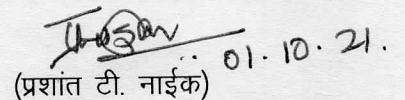 01.10.21.
(प्रशांत टी. नाईक)